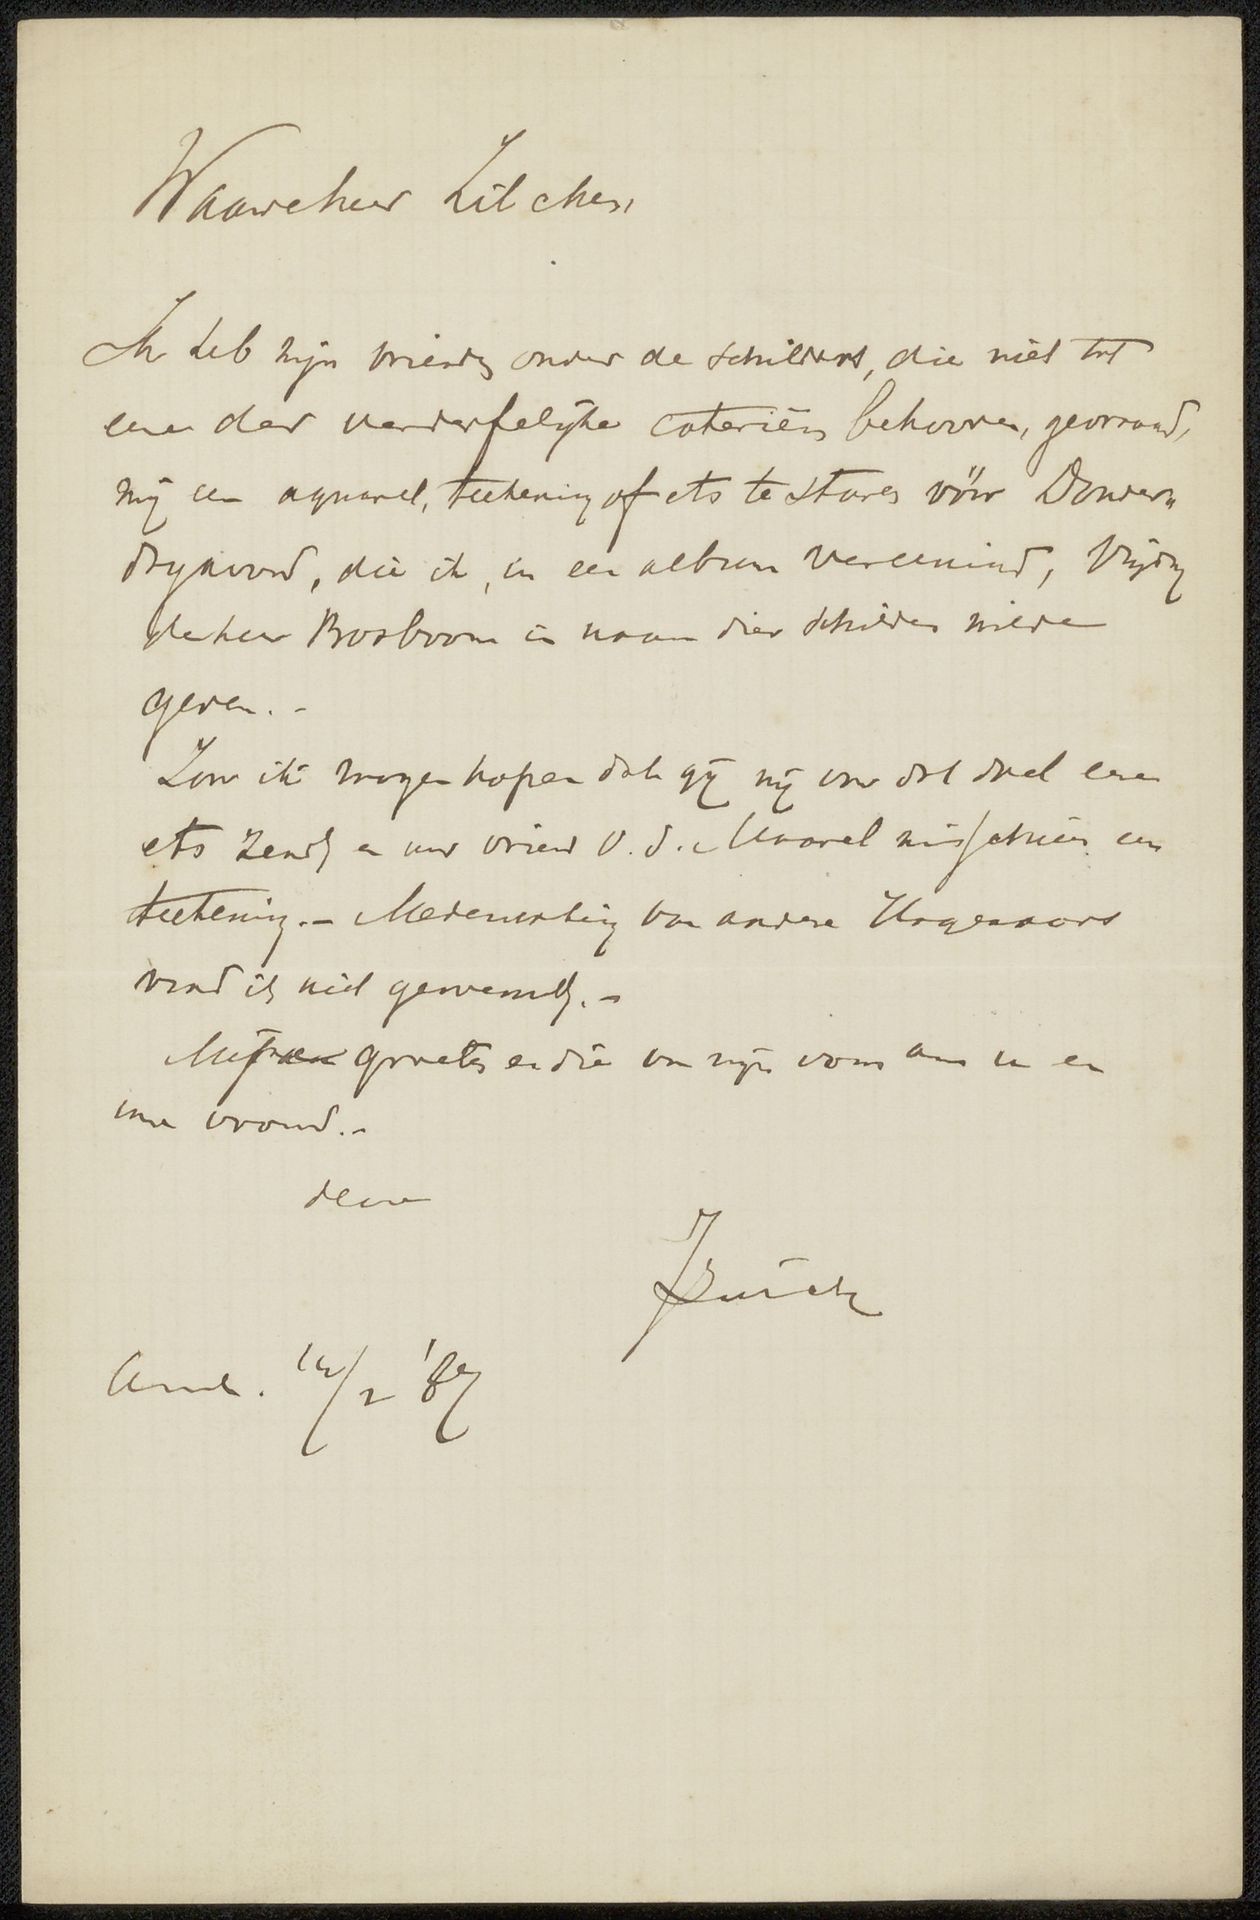 Waarde heer Zilcken,
Ik heb mijn vrienden onder de schilders, die niet tot
eene der verderfelijke coterieën behooren, gevraagd,
mij een aquarel, teekening of ets te sturen vóór Donder=
dagavond, die ik, in een album vereenind, Vrijdag
de heer Bosboom in naam dier schilders wilde
geven. -
Zou ik mogen hopen dat gij mij voor dat doel eene
ets zendt en uw vriend v. d. Maarel misschien een
teekening. - Medewerking van andere Hagenaars
vind ik niet gewenscht. -
Mijne groeten en die van mijn vrouw aan u en
uwe vrouw. -
deze
Amd. /2 '87